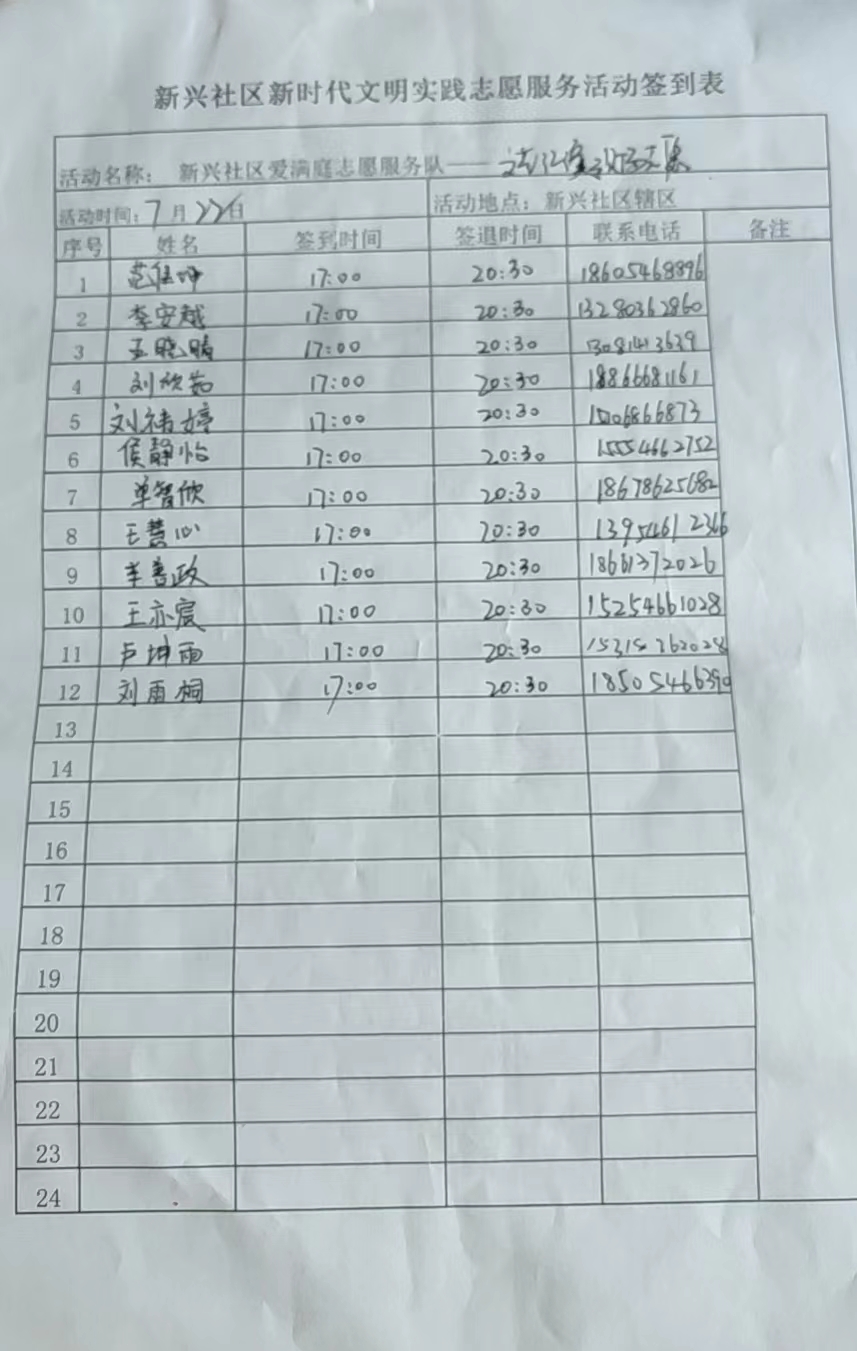 新兴社区新时代文明实践志愿服务活动签到表
活动名称： 新兴社区爱满庭志愿服务队——
活动时间：7月22日 活动地点：新兴社区辖区
序号 姓名 签到时间 签退时间 联系电话 备注
1 17:00 20:30 18605468896
2 李安越 17:00 20:30 13280362860
3 孟晓晴 17:00 20:30
4 刘欣茹 17:00 20:30 18866681161
5 刘祎婷 17:00 20:30
6 侯静怡 17:00 20:30 15554662752
7 单智欣 17:00 20:30 18678625682
8 王慧心 17:00 20:30 13954612366
9 李善政 17:00 20:30 18661372026
10 王亦宸 17:00 20:30 15254661028
11 卢坤雨 17:00 20:30
12 刘雨桐 17:00 20:30 18505466390
13
14
15
16
17
18
19
20
21
22
23
24